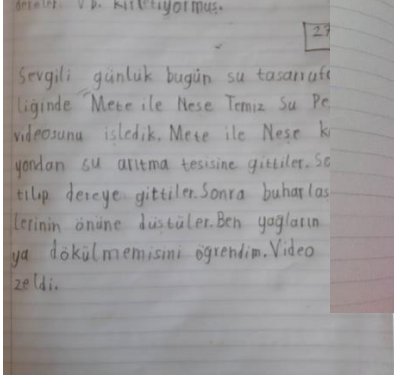 dereler v.b. kirletiyormuş.
27
Sevgili günlük bugün su tasarrufu
liğinde "Mete ile Neşe Temiz Su Pe
videosunu işledik. Mete ile Neşe k
yondan su arıtma tesisine gittiler. So
tılıp dereye gittiler. Sonra buharlaş
lerinin önüne düştüler. Ben yağların
ya dökülmemisini öğrendim. Video
zeldi.